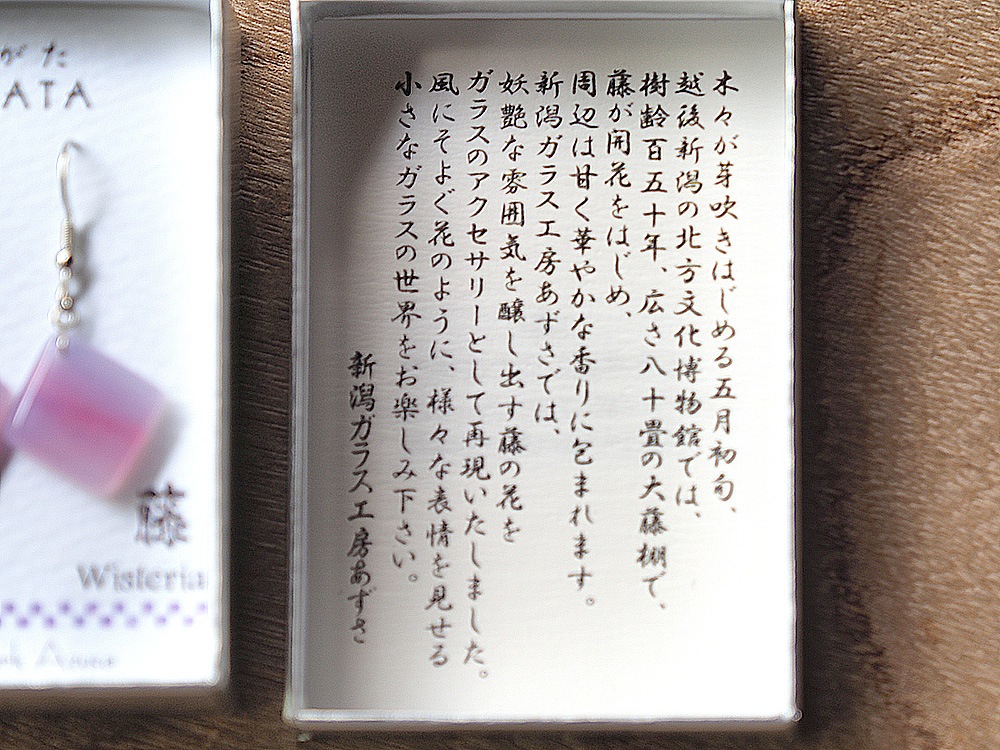 木々が芽吹きはじめる五月初旬、
越後新潟の北方文化博物館では、
樹齢百五十年、広さ八十畳の大藤棚で、
藤が開花をはじめ、
周辺は甘く華やかな香りに包まれます。
新潟ガラス工房あずさでは、
妖艶な雰囲気を醸し出す藤の花を
ガラスのアクセサリーとして再現いたしました。
風にそよぐ花のように、様々な表情を見せる
小さなガラスの世界をお楽しみ下さい。
新潟ガラス工房あずさ
がた
ATA
藤
Wisteria